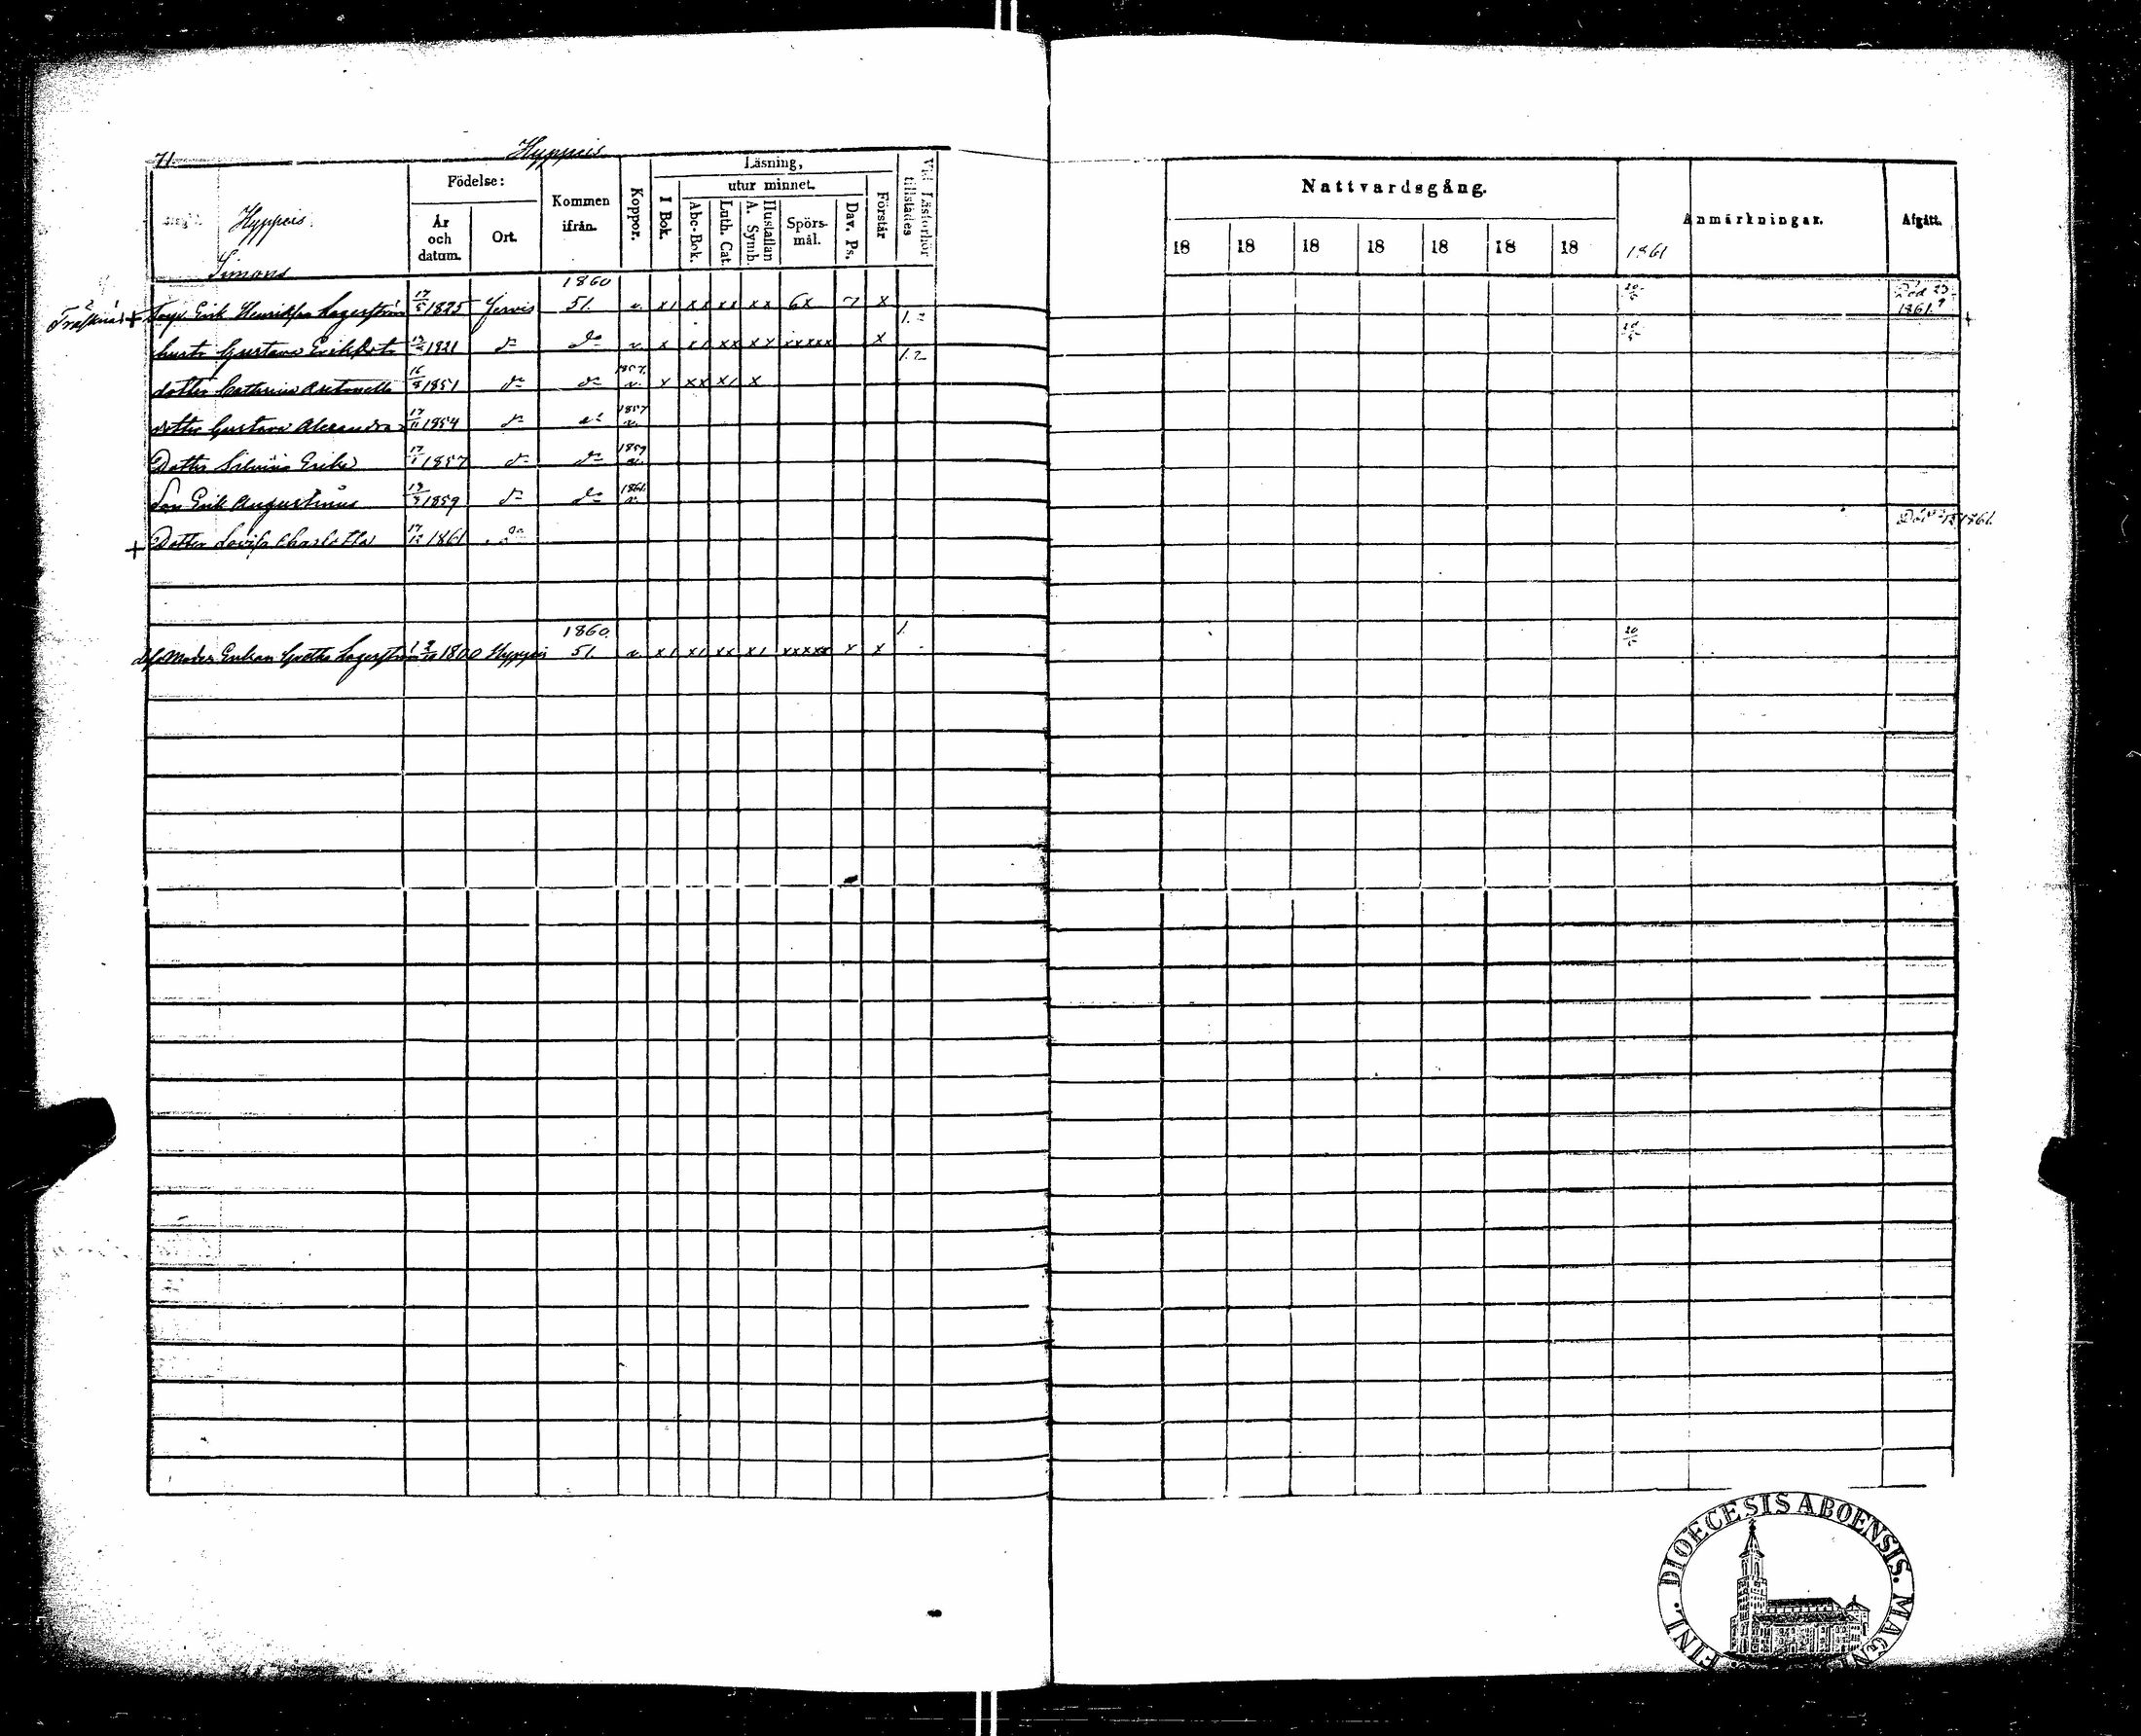 71.
Hyppeis
Hyppeis
Simons
Födelse:
År och datum.
Ort.
Kommen ifrån.
Koppor.
Läsning,
I Bok.
utur minnet.
Abc-Bok.
Luth. Cat.
Hustaflan A. Symb.
Spörsmål.
Dav. Ps.
Förstår
Vid Läsförhör tillstädes
Nattvardsgång.
18 18 18 18 18 18 18 1861
Anmärkningar.
Afgått.
1860
+ Erik Henriksson Lagerström 17/5 1825 Jervis 51. v. x1 xx xx xx 6x x 20/5 Död 23/9 1861. +
hustr Gustava Eriksdotr 1821 do do v. x x1 xx xx xxxxx x 1.2
dotter Cathrina Antonetta 16/8 1851 do do 1857. v. x xx x1 x
dotter Gustava Alexandra 17/11 1854 do do 1857 v.
Dotter Silvina Erika 17/1 1857 do do 1859 v.
Son Erik Augustinus 19/3 1859 do do 1861. v.
+ Dotter Lovisa Charlotta 17/12 1861 do 1861.
1860. 1.
Moder Enkan Gretha Lagerström 1800 Hyppeis 51. v. x1 x1 xx x1 xxxxx x x
DIOECESIS ABOENSIS. MAGNI